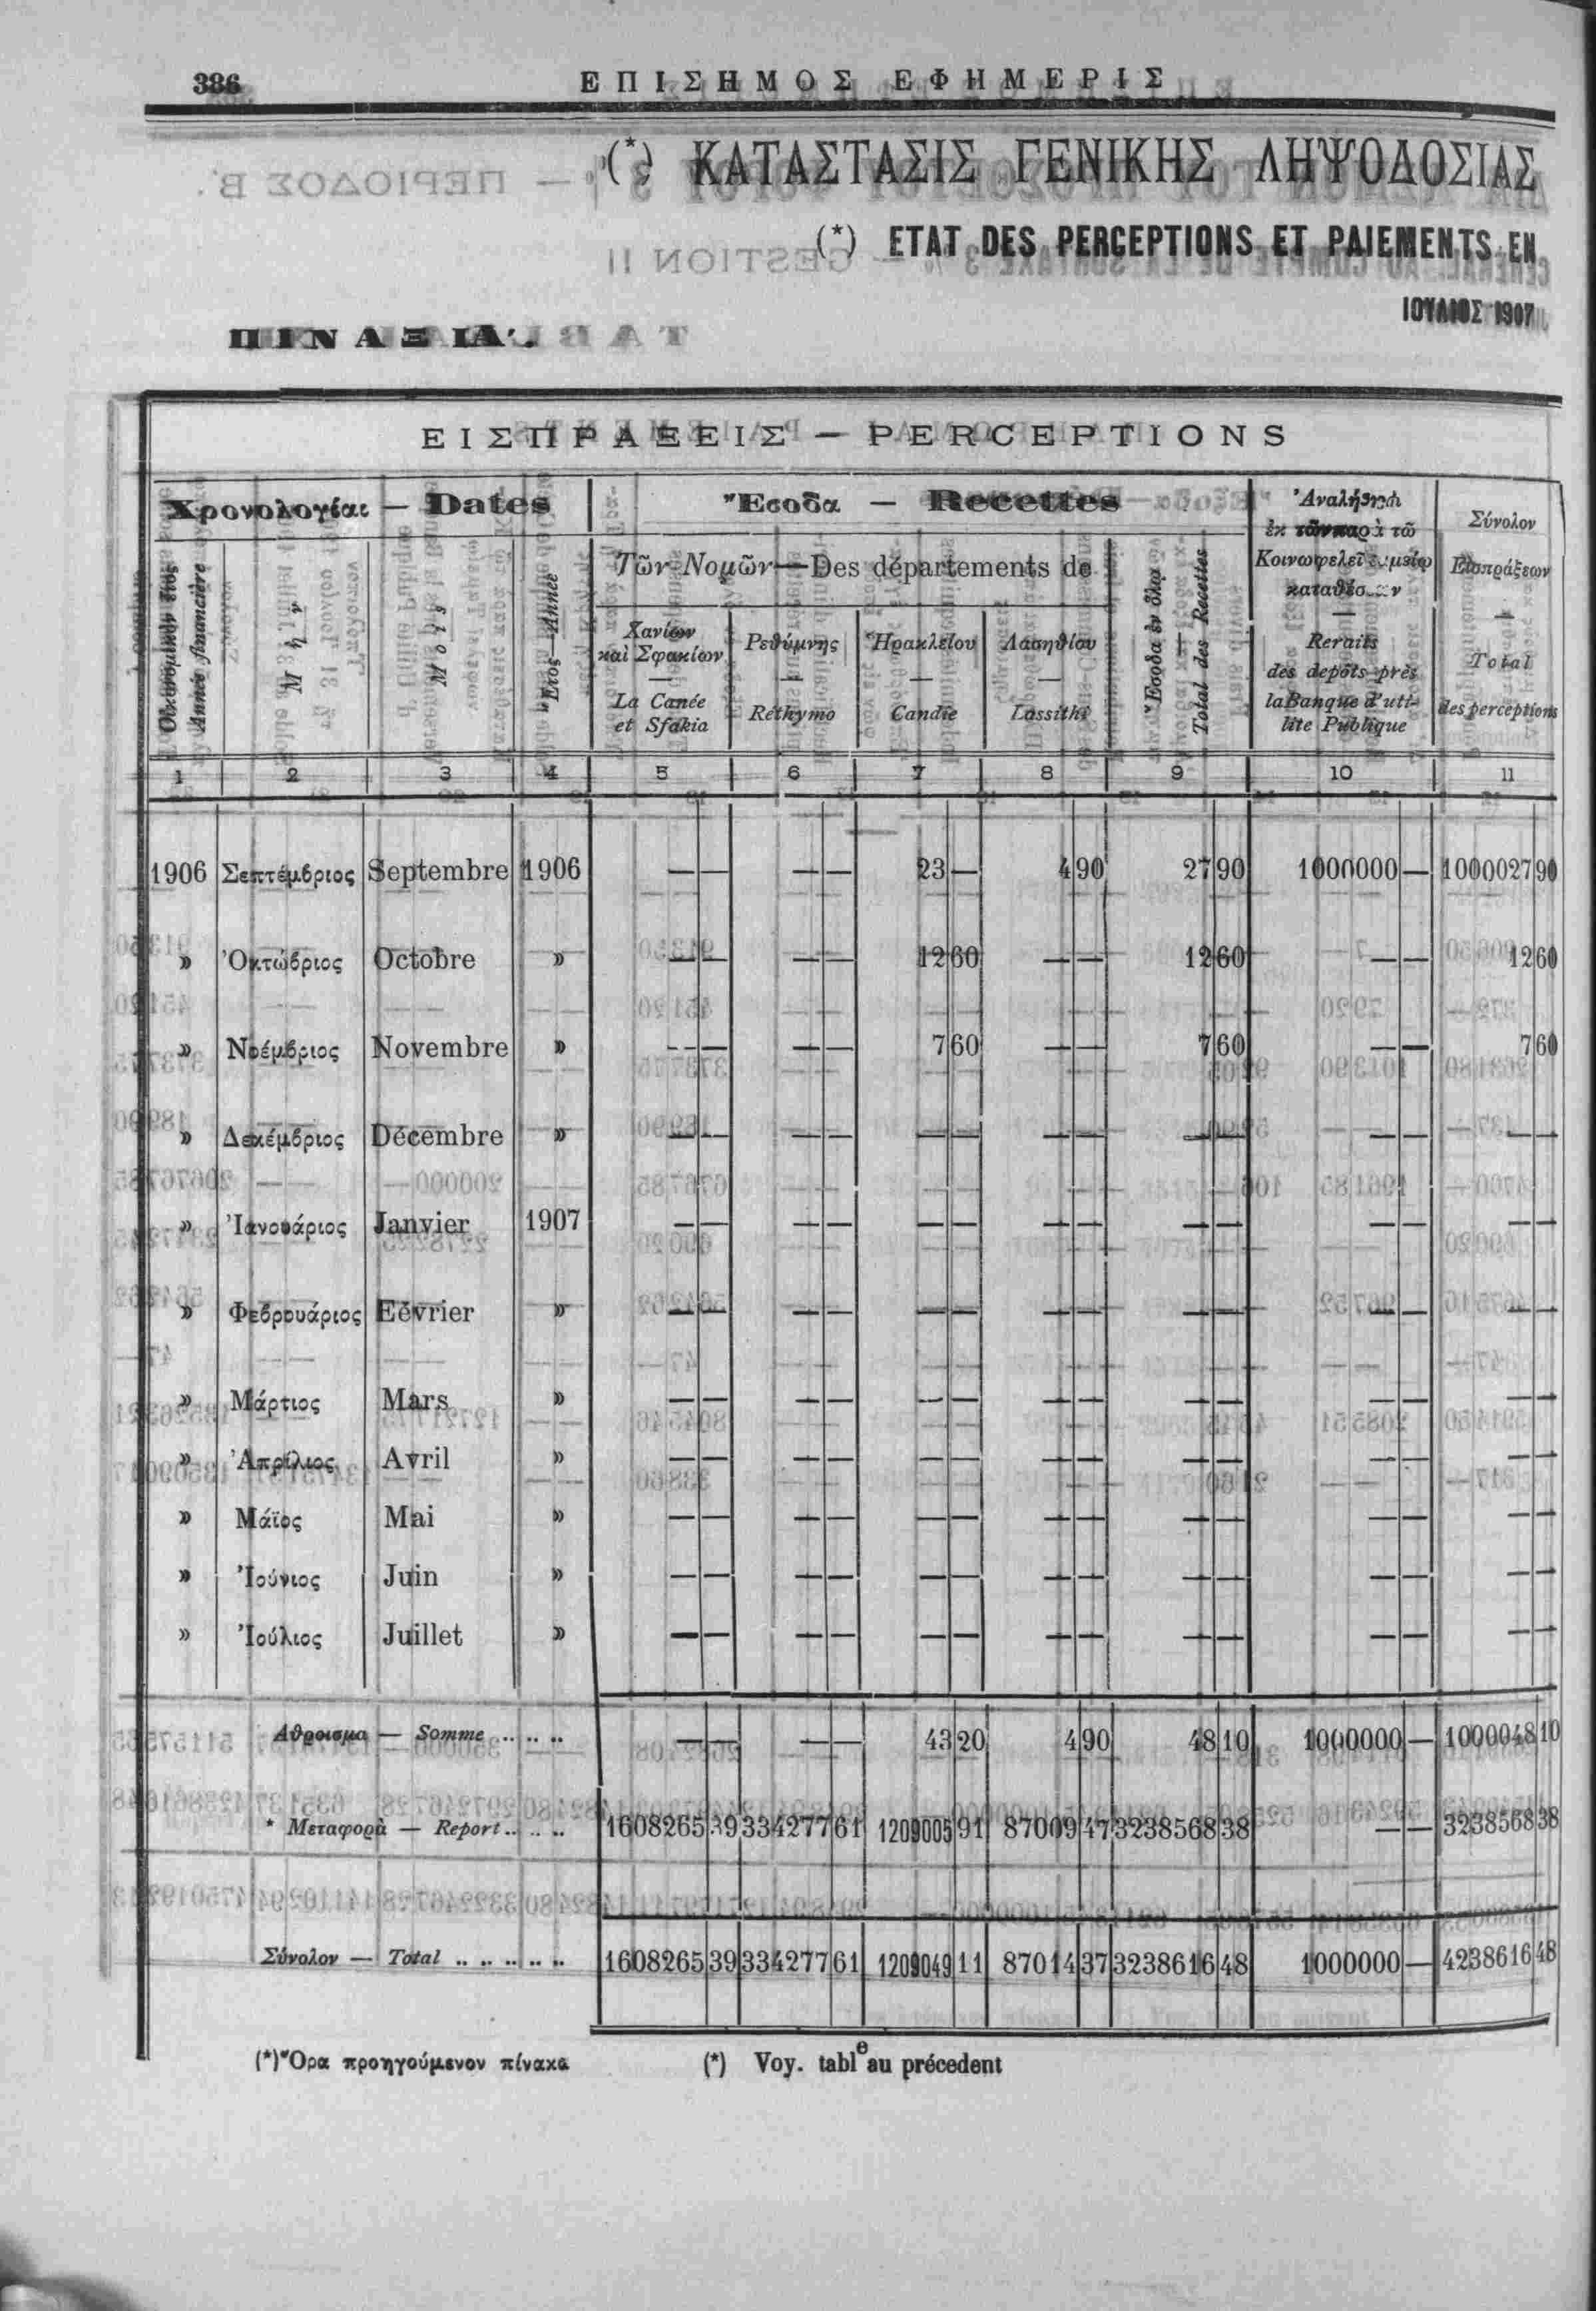 386 ΕΠΙΣΗΜΟΣ ΕΦΗΜΕΡΙΣ
(*) ΚΑΤΑΣΤΑΣΙΣ ΓΕΝΙΚΗΣ ΛΗΨΟΔΟΣΙΑΣ
(*) ETAT DES PERCEPTIONS ET PAIEMENTS EN
ΙΟΥΛΙΟΣ 1907
ΠΙΝΑΞ ΙΑ'.
ΕΙΣΠΡΑΞΕΙΣ — PERCEPTIONS
Χρονολογίαι — Dates
Οἰκονομικὸν ἔτος
Année financière
Μ ή ν
M o i s
Ἔτος—Année
Ἔσοδα — Recettes
Τῶν Νομῶν—Des départements de
Χανίων
καὶ Σφακίων
—
La Canée
et Sfakia
Ρεθύμνης
—
Réthymo
Ἡρακλείου
—
Candie
Λασηθίου
—
Lassithi
Ἔσοδα ἐν ὅλῳ
—
Total des Recettes
Ἀναλήψεις
ἐκ τῶν παρὰ τῷ
Κοινωφελεῖ Ταμείῳ
—
Reraits
des depôts près
la Banque d'uti-
lite Publique
Σύνολον
Εἰσπράξεων
—
Total
des perceptions
1 2 3 4 5 6 7 8 9 10 11
1906 Σεπτέμβριος Septembre 1906 — — — — 23 — 4 90 27 90 1000000 — 1000027 90
» Ὀκτώβριος Octobre » — — — — 12 60 — — 12 60 — — 12 60
» Νοέμβριος Novembre » — — — — 7 60 — — 7 60 — — 7 60
» Δεκέμβριος Décembre » — — — — — — — — — — — — — —
» Ἰανουάριος Janvier 1907 — — — — — — — — — — — — — —
» Φεβρουάριος Eévrier » — — — — — — — — — — — — — —
» Μάρτιος Mars » — — — — — — — — — — — — — —
» Ἀπρίλιος Avril » — — — — — — — — — — — — — —
» Μάϊος Mai » — — — — — — — — — — — — — —
» Ἰούνιος Juin » — — — — — — — — — — — — — —
» Ἰούλιος Juillet » — — — — — — — — — — — — — —
Αθροισμα — Somme .. .. .. — — — — 43 20 4 90 48 10 1000000 — 1000048 10
* Μεταφορὰ — Report .. .. .. 1608265 39 334277 61 1209005 91 87009 47 3238568 38 — — 3238568 38
Σύνολον — Total .. .. .. .. .. 1608265 39 334277 61 1209049 11 87014 37 3238616 48 1000000 — 4238616 48
(*) Ὅρα προηγούμενον πίνακα (*) Voy. tableau précedent